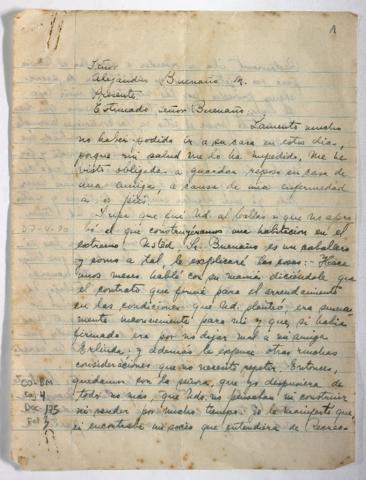 1
Señor
Alejandro Buenaño M.
Presente
Estimado señor Buenaño:
Lamento mucho
no haber podido ir a su casa en estos dias,
porque mi salud me lo ha impedido, me he
visto obligada a guardar reposo en casa de
una amiga, a causa de una enfermedad
a los pies.
Supe que fué Ud. al balles y que no apro
bó el que construyéramos una habitacion en el
extremo. Usted Sr. Buenaño es un caballero
y como a tal, le explicaré las cosas: Hace
unos meses hablé con su mamá diciéndole que
el contrato que firmé para el arrendamiento
en las condiciones que Ud. planteó, era suma
mente inconveniente para mi y que, si había
firmado era por no dejar mal a mi amiga
Erlinda; y además le expuse otras muchas
consideraciones que no necesito repetir. Entonces,
quedamos con la señora, que yo dispusiera de
todo no más, que Uds. no pensaban ni construir
ni vender por mucho tiempo. Yo le manifesté que
si encontraba un socio que entendiera de
COL BM
Caj 4
Doc 175
Fol